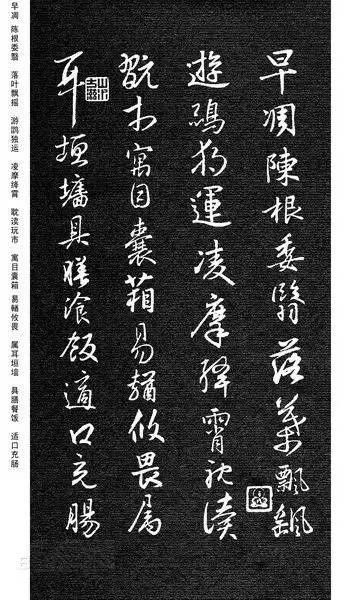 早凋陳根委翳落葉飄颻
遊鵾獨運凌摩絳霄耽讀
翫市寓目囊箱易輶攸畏属
耳垣墻具膳飡飯適口充腸
早凋 陈根委翳 落叶飘摇 游鹍独运 凌摩绛霄 耽读玩市 寓目囊箱 易輶攸畏 属耳垣墙 具膳餐饭 适口充肠